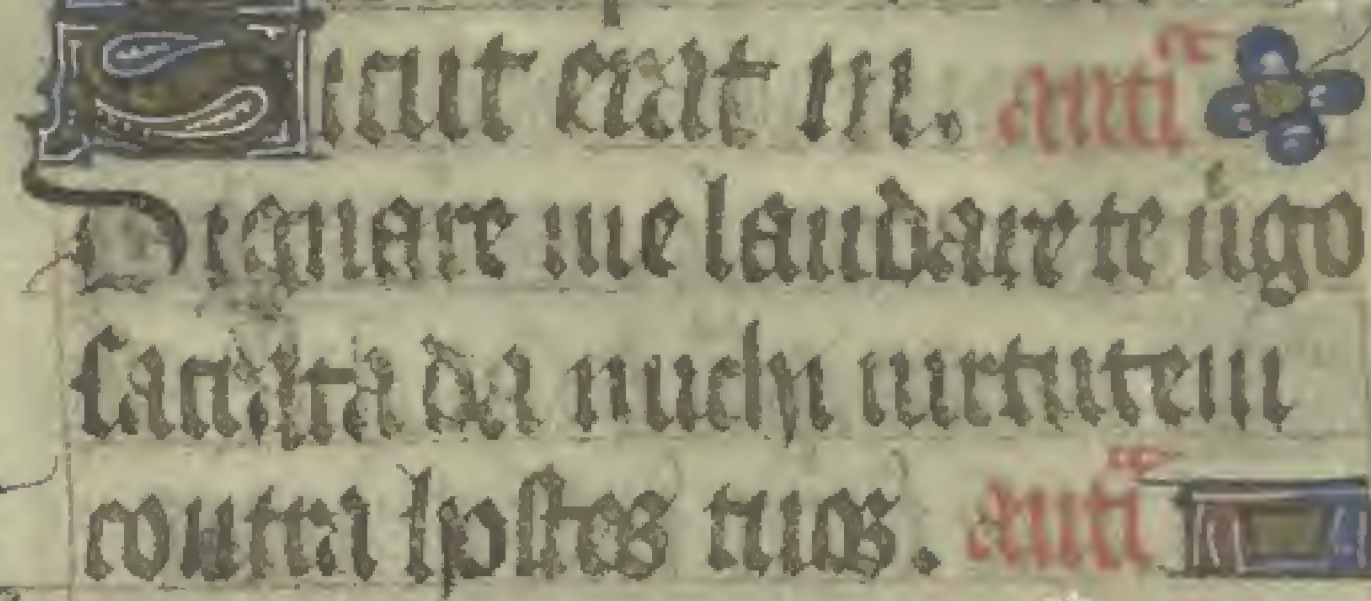 Sicut erat in. anti
Dignare me laudare te u͛go
sacrata da michi uirtutem
contra hostes tuos. anti